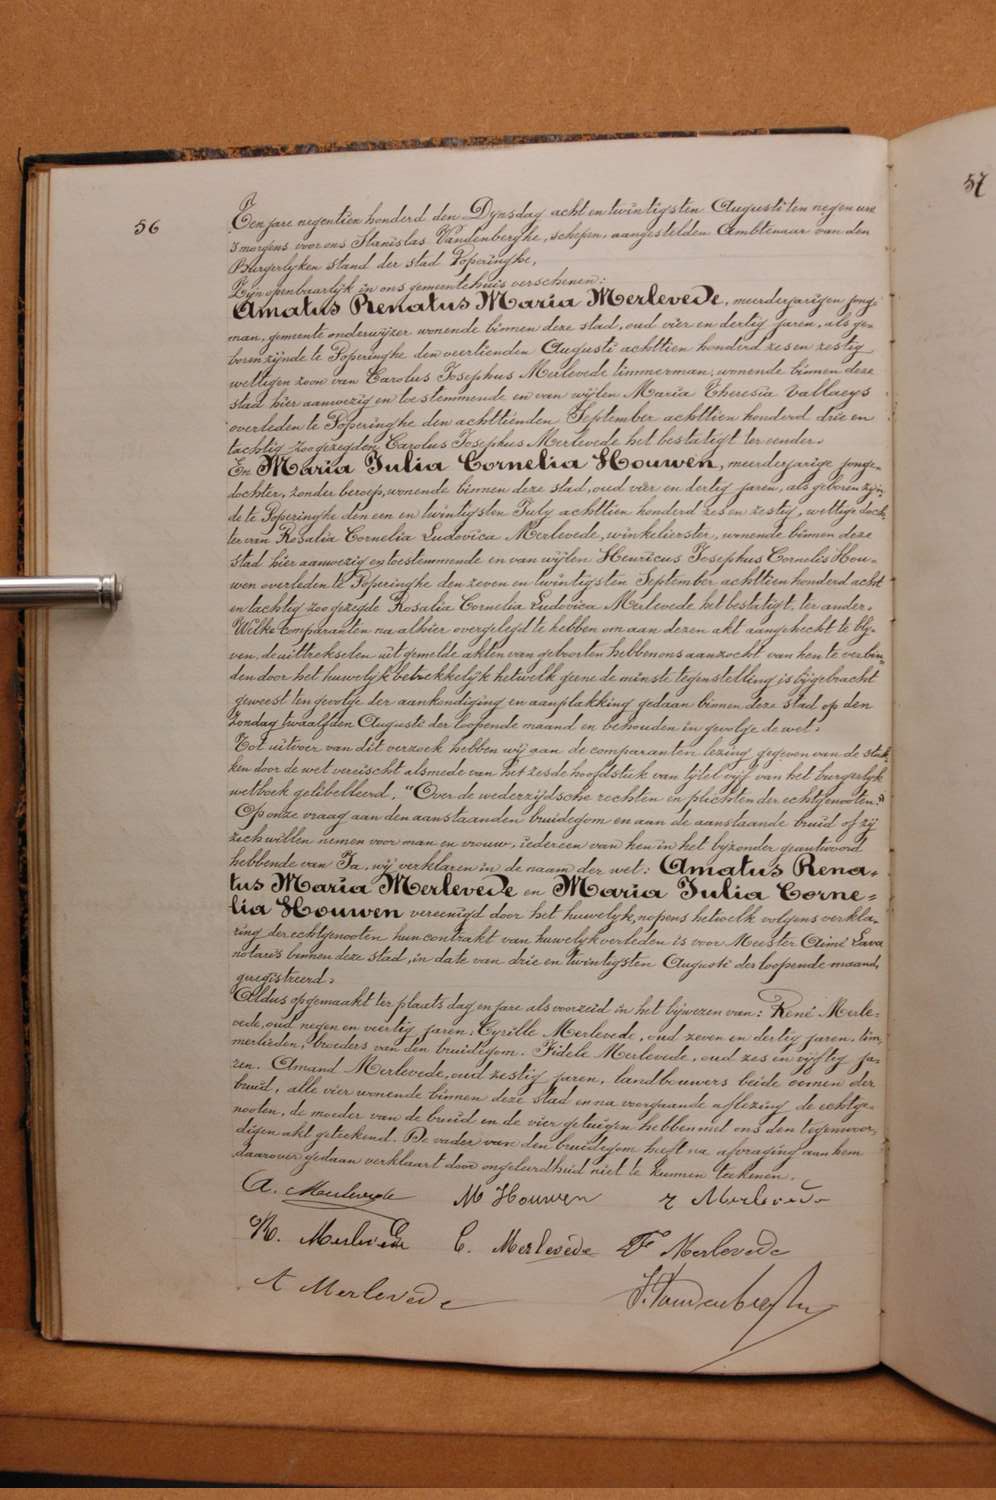 56
57
Ten jare negentien honderd den Dynsdag acht en twintigsten Augusti ten negen ure
's morgens voor ons Stanislas Vandenberghe, schepen, aangestelden Ambtenaar van den
Burgerlyken stand der stad Poperinghe,
Zijn openbaarlyk in ons gemeentehuis verschenen:
Amatus Renatus Maria Merlevede, meerderjarigen jong-
man, gemeente onderwijzer wonende binnen deze stad, oud vier en dertig jaren, als ge-
boren zijnde te Poperinghe den veertienden Augusti achttien honderd zes en zestig
wettigen zoon van Carolus Josephus Merlevede timmerman, wonende binnen deze
stad hier aanwezig en toestemmende en van wijlen Maria Theresia Vallaeys
overleden te Poperinghe den achttienden September achttien honderd drie en
tachtig zoo gezegden Carolus Josephus Merlevede het bestatigt ter eender.
En Maria Julia Cornelia Houwen, meerderjarige jonge-
dochter, zonder beroep, wonende binnen deze stad, oud vier en dertig jaren, als geboren zijn-
de te Poperinghe den een en twintigsten July achttien honderd zes en zestig, wettige doch-
ter van Rosalia Cornelia Ludovica Merlevede, winkelierster, wonende binnen deze
stad hier aanwezig en toestemmende en van wijlen Henricus Josephus Cornelis Hou-
wen overleden te Poperinghe den zeven en twintigsten September achttien honderd acht
en tachtig zoo gezegde Rosalia Cornelia Ludovica Merlevede het bestatigt, ter ander.
Welke comparanten na alhier overgelegd te hebben om aan dezen akt aangehecht te bly-
ven, de uittrekselen uit gemelde akten van geboorten hebben ons aanzocht van hen te verbin-
den door het huwelyk betrekkelyk hetwelk geene de minste tegenstelling is bijgebracht
geweest ten gevolge der aankondiging en aanplakking gedaan binnen deze stad op den
Zondag twaalfden Augusti der loopende maand en behouden in gevolge de wet.
Tot uitvoer van dit verzoek hebben wij aan de comparanten lezing gegeven van de stuk-
ken door de wet vereischt alsmede van het zesde hoofdstuk van tytel vyf van het burgerlyk
wetboek gelibelleerd: "Over de wederzijdsche rechten en plichten der echtgenooten."
Op onze vraag aan den aanstaanden bruidegom en aan de aanstaande bruid of zij
zich willen nemen voor man en vrouw, iedereen van hen in het bijzonder geantwoord
hebbende van Ja, wij verklaren in de naam der wet: Amatus Rena-
tus Maria Merlevede en Maria Julia Corne-
lia Houwen vereenigd door het huwelyk, nopens hetwelk volgens verkla-
ring der echtgenooten hun contrakt van huwelyk verleden is voor Meester Aimé Lava
notaris binnen deze stad, in date van drie en twintigsten Augusti der loopende maand,
geregistreerd.
Aldus opgemaakt ter plaats dag en jare als voorzeid in het bijwezen van: René Merle-
vede, oud negen en veertig jaren, Cyrille Merlevede, oud zeven en dertig jaren, tim-
merlieden, broeders van den bruidegom. Fidele Merlevede, oud zes en vijftig ja-
ren. Amand Merlevede, oud zestig jaren, landbouwers beide oomen der
bruid, alle vier wonende binnen deze stad en na voorgaande aflezing de echtge-
nooten, de moeder van de bruid en de vier getuigen hebben met ons den tegenwoor-
digen akt geteekend. De vader van den bruidegom heeft na afvraging aan hem
daarover gedaan verklaart door ongeleerdheid niet te kunnen teekenen.
A. Merlevede M Houwen r Merlevede
R. Merlevede C. Merlevede F Merlevede
A Merlevede S. Vandenberghe